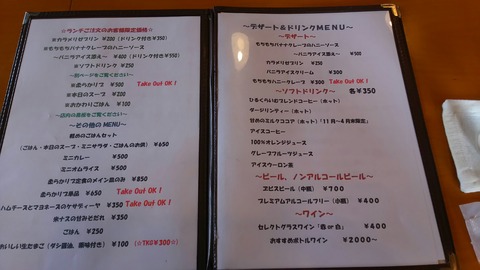 ☆ランチご注文のお客様限定価格☆
※カラメリゼプリン ¥200（ドリンク付き¥350）
※もちもちバナナクレープのハニーソース
～バニラアイス添え～ ¥400（ドリンク付き¥550）
※ソフトドリンク ¥250
～別ページをご覧ください～
※柔らかリブ ¥500 Take Out OK！
※本日のスープ ¥200
※おかわりごはん ¥100
～店内の黒板をご覧ください～
～その他のMENU～
軽めのごはんセット
（ごはん・本日のスープ・ミニサラダ・ごはんのお供） ¥650
ミニカレー ¥500
ミニオムライス ¥500
柔らかリブ定食のメイン皿のみ ¥850
柔らかリブ単品 ¥650 Take Out OK！
ハムチーズとマヨネーズのケサディーヤ ¥350 Take Out OK！
水ナスの甘みそだれ ¥350
ごはん ¥250
おいしい生たまご（ダシ醤油、薬味付き） ¥100 （☆TKG¥300☆）
～デザート＆ドリンクMENU～
～デザート～
もちもちバナナクレープのハニーソース
～バニラアイス添え～ ¥500
カラメリゼプリン ¥350
バニラアイスクリーム ¥300
もちもちハニークレープ ¥300 Take Out OK！
～ソフトドリンク～ 各¥350
ひるくらいむブレンドコーヒー（ホット）
ダージリンティー（ホット）
甘めのミルクココア（ホット）「11月～4月末限定」
アイスコーヒー
100%オレンジジュース
グレープフルーツジュース
アイスウーロン茶
～ビール、ノンアルコールビール～
ヱビスビール（中瓶） ¥700
プレミアムアルコールフリー（小瓶） ¥400
～ワイン～
セレクトグラスワイン「赤or白」 ¥400
おすすめボトルワイン ¥2000～